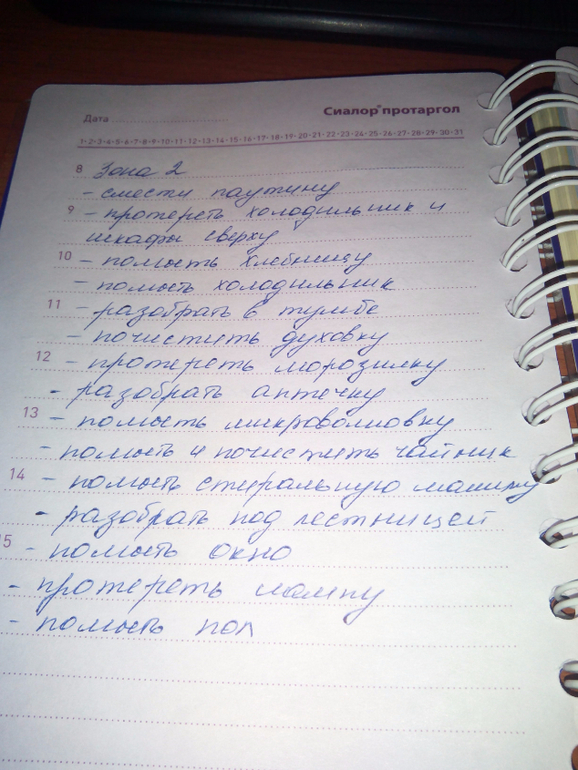 Сиалор® протаргол
Дата
1•2•3•4•5•6•7•8•9•10•11•12•13•14•15•16•17•18•19•20•21•22•23•24•25•26•27•28•29•30•31
8 Зона 2
- смести паутину
9 - протереть холодильник и
шкафы сверху
10 - помыть хлебницу
- помыть холодильник
11 - разобрать в тумбе
- почистить духовку
12 - протереть морозилку
- разобрать аптечку
13 - помыть микроволновку
- помыть и почистить чайник
14 - помыть стиральную машину
- разобрать под лестницей
15 - помыть окно
- протереть лампу
- помыть пол